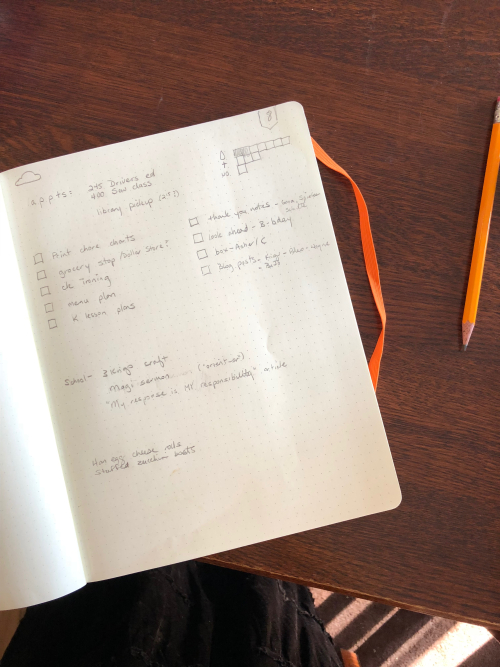 8
appts: 245 Drivers ed
400 Sew class
library pickup (2-?)
Print chore charts
grocery stop / Dollar Store?
menu plan
K lesson plans
thank you notes -
look ahead - B-bday
box - Asher / C
Blog posts -
School - 3 kings craft
Magi sermon
"My response is MY responsibility" article
Ham egg cheese rolls
stuffed zucchini boats